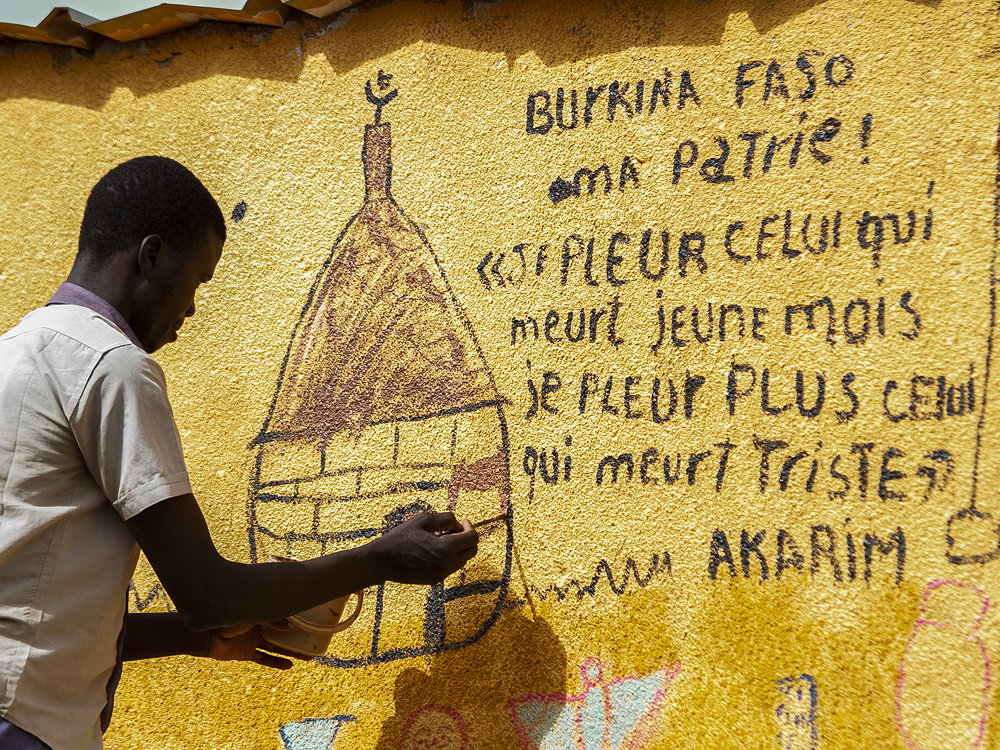 BURKINA FASO
MA PATriE !
«JE PLEUR CELUI qUi
meurt jeune mois
je PLEUR PLUS CELUI
qui meurt TRISTE»
AKARIM